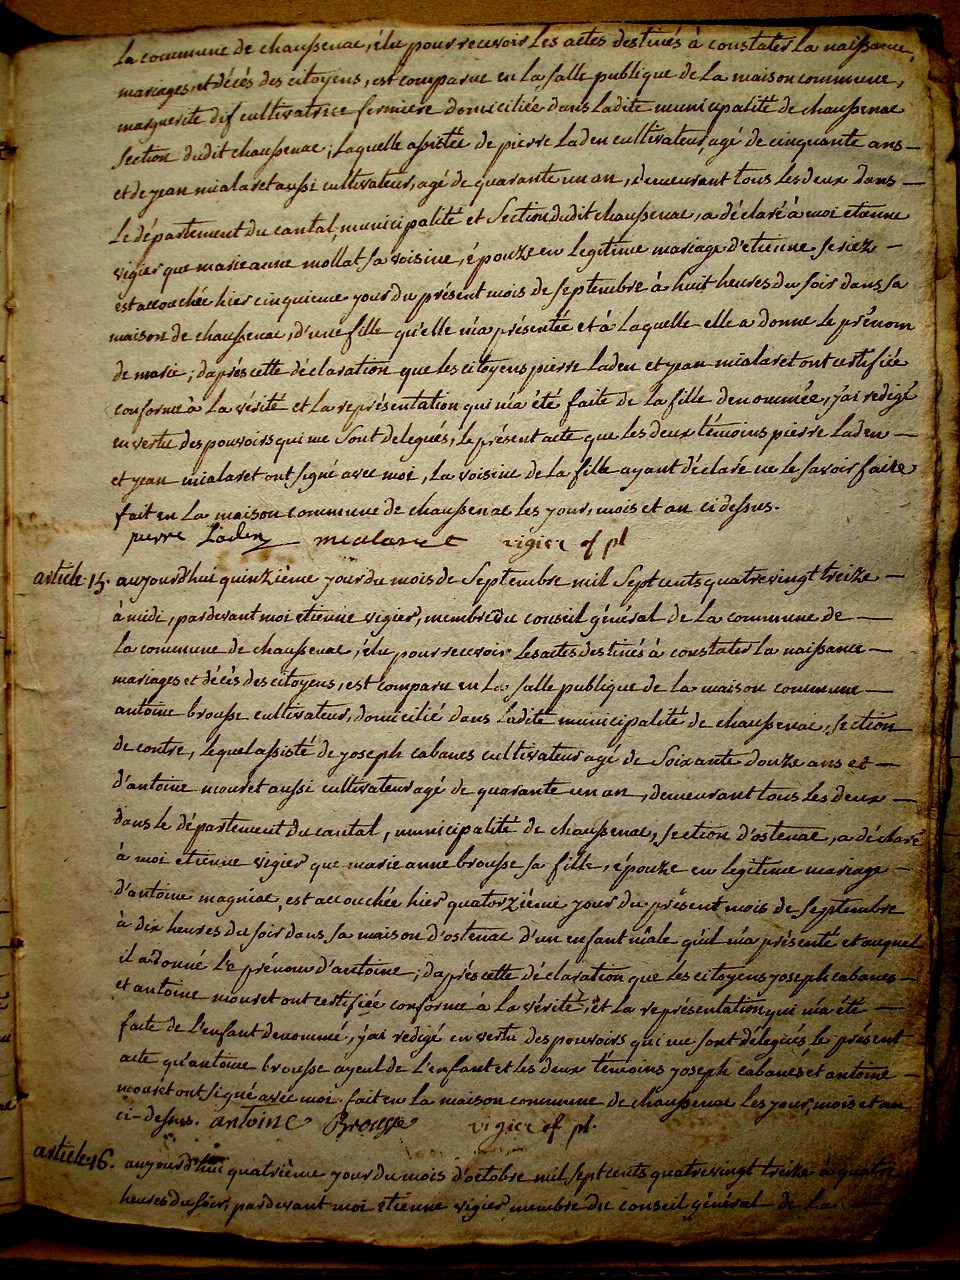 la commune de chaussenac, élu pour recevoir les actes destinés à constater la naissance,
mariages, et décés des citoyens, est comparue en la salle publique de la maison commune,
marguerite dif cultivatrice fermiere domiciliée dans ladite municipalité de chaussenac
section dudit chaussenac; laquelle assistée de pierre Laden cultivateur agé de cinquante ans —
et de jean mialaret aussi cultivateur, agé de quarante un an, demeurant tous les deux dans —
le département du cantal, municipalité et Section dudit chaussenac, a déclaré à moi etienne
vigier que marie anne mollat sa voisine, épouze en legitime mariage d'etienne seriez —
est accouchée hier cinquieme jour du présent mois de septembre à huit heures du soir dans sa
maison de chaussenac, d'une fille qu'elle m'a présentée et à laquelle elle a donné le prénom
de marie; d'aprés cette déclaration que les citoyens pierre Laden et jean mialaret ont certifiée
conforme à la vérité et la représentation qui m'a été faite de la fille denommée, j'ai redigé
en vertu des pouvoirs qui me sont delegués, le présent acte que les deux témoins pierre Laden —
et jean mialaret ont signé avec moi, la voisine de la fille ayant déclaré ne le savoir faire
fait en la maison commune de chaussenac les jour, mois et an ci dessus.
pierre Laden mialaret vigier of pl
article 15. aujourd'hui quinzième jour du mois de Septembre mil Sept cents quatre vingt treize —
à midi, pardevant moi etienne vigier, membre du conseil général de la commune de —
la commune de chaussenac, élu pour recevoir les actes destinés à constater la naissance —
mariages et décès des citoyens, est comparu en la salle publique de la maison commune —
antoine brousse cultivateur, domicilié dans ladite municipalité de chaussenac, section
de contre, lequel assisté de joseph cabanes cultivateur agé de Soixante douze ans et —
d'antoine mouret aussi cultivateur agé de quarante un an, demeurant tous les deux —
dans le département du cantal, municipalité de chaussenac, section d'ostenac, a déclaré
à moi etienne vigier que marie anne brousse sa fille, épouze en legitime mariage —
d'antoine magniac, est accouchée hier quatorzième jour du présent mois de septembre
à dix heures du soir dans sa maison d'ostenac d'un enfant mâle qu'il m'a présenté et auquel
il a donné le prénom d'antoine; d'après cette déclaration que les citoyens joseph cabanes —
et antoine mouret ont certifiée conforme à la vérité, et la représentation qui m'a été —
faite de l'enfant denommé, j'ai redigé en vertu des pouvoirs qui me sont délegués, le présent
acte qu'antoine brousse ayeul de l'enfant et les deux témoins joseph cabanes et antoine —
mouret ont signé avec moi. fait en la maison commune de chaussenac les jour, mois et an
ci-dessus. antoine Brousse vigier of pl.
article 16. aujourd'hui quatrième jour du mois d'octobre mil sept cents quatre vingt treize à quatre
heures du soir, pardevant moi etienne vigier membre du conseil général de la —